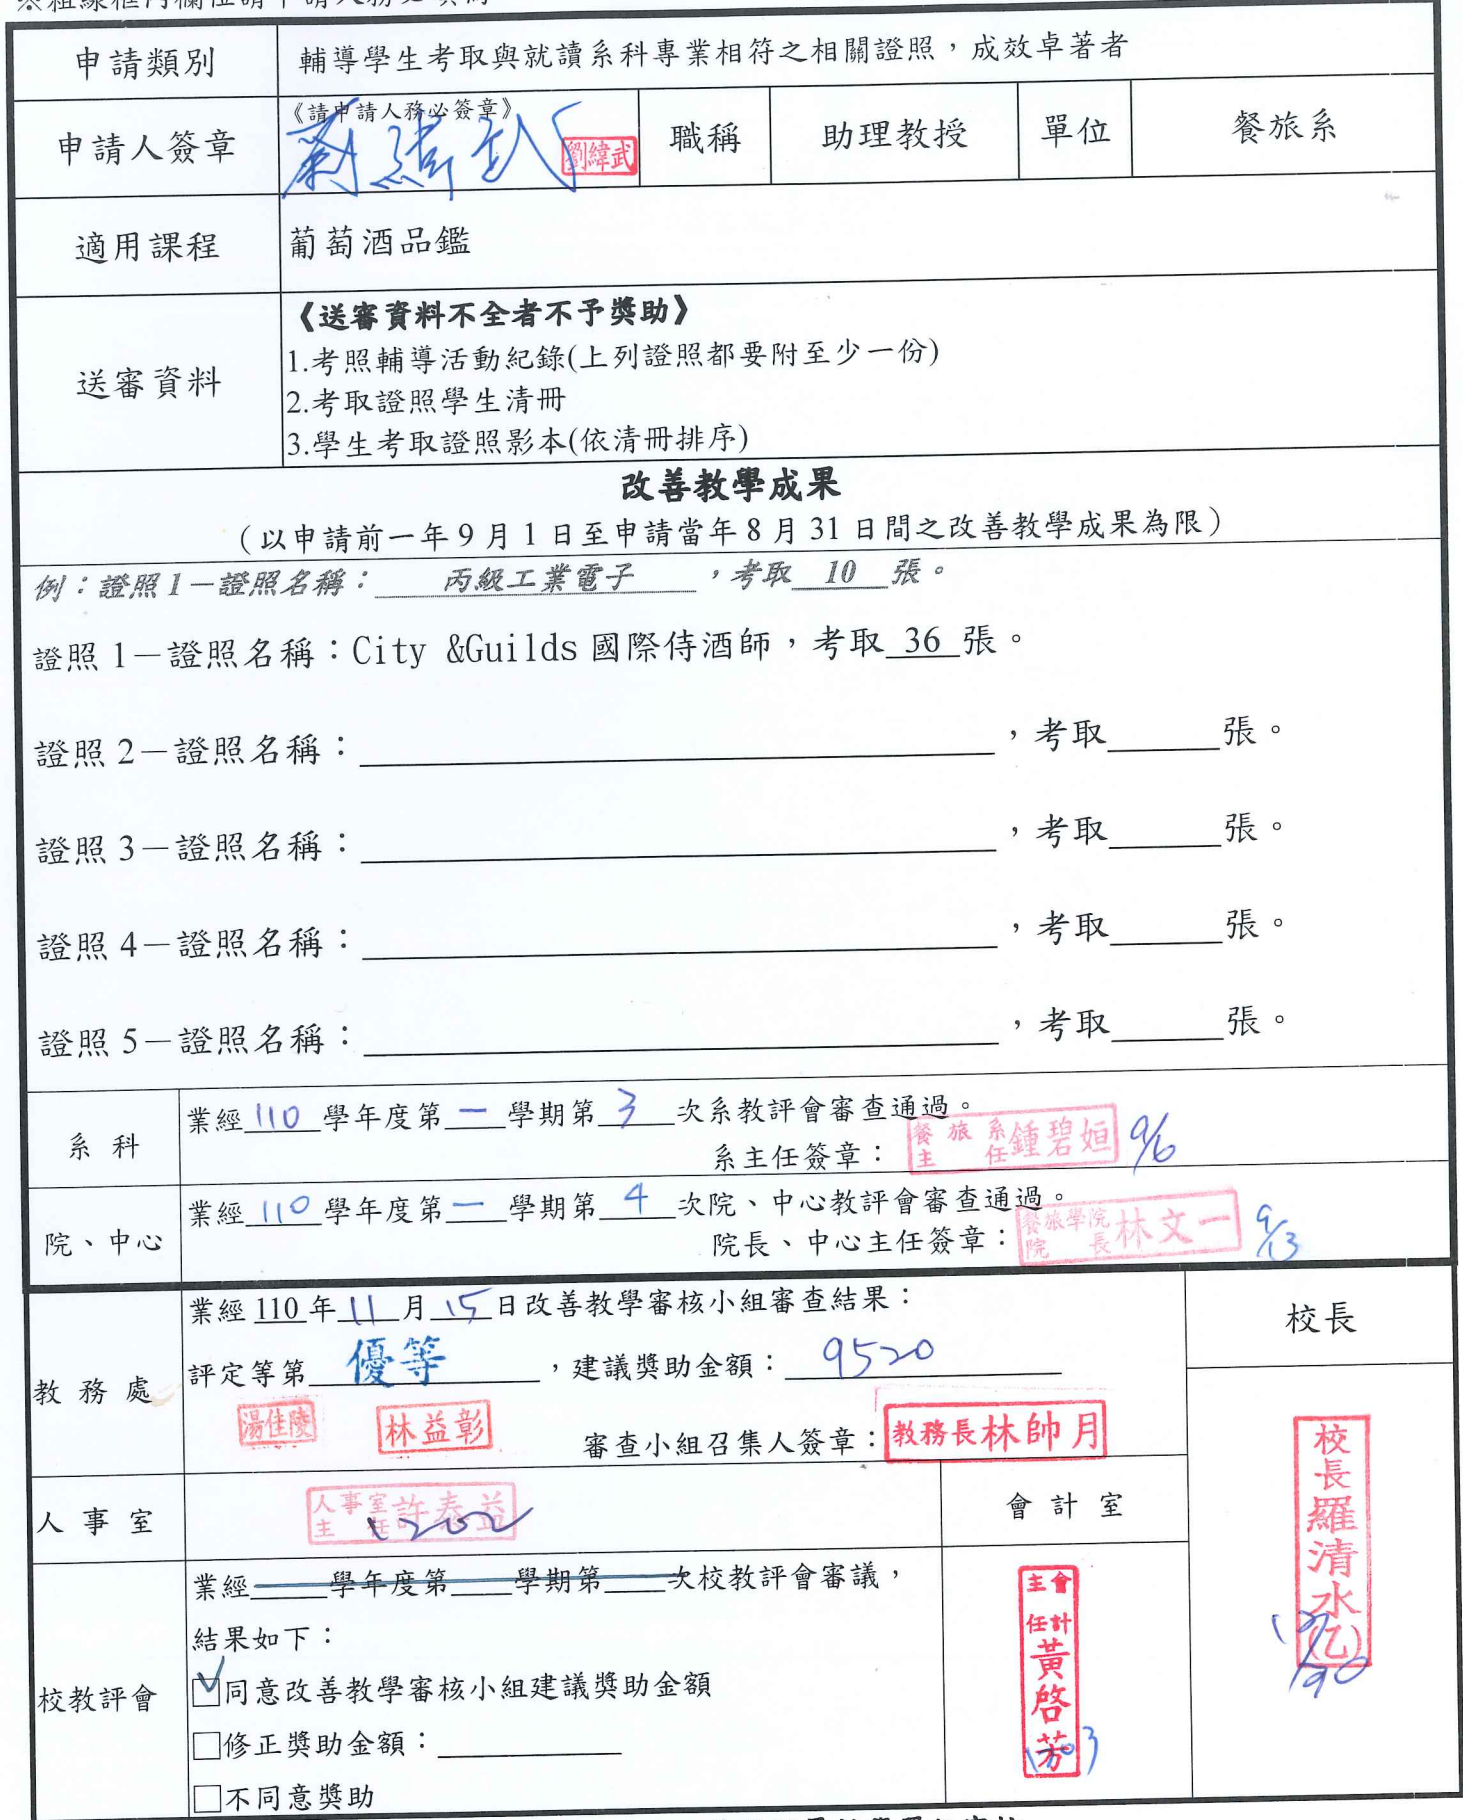 申請類別 輔導學生考取與就讀系科專業相符之相關證照，成效卓著者
《請申請人務必簽章》
申請人簽章 劉緯武 劉緯武 職稱 助理教授 單位 餐旅系
適用課程 葡萄酒品鑑
《送審資料不全者不予獎助》
1.考照輔導活動紀錄(上列證照都要附至少一份)
送審資料
2.考取證照學生清冊
3.學生考取證照影本(依清冊排序)
改善教學成果
（以申請前一年9月1日至申請當年8月31日間之改善教學成果為限）
例：證照1－證照名稱：丙級工業電子，考取 10 張。
證照1－證照名稱：City &Guilds 國際侍酒師，考取 36 張。
證照2－證照名稱：，考取 張。
證照3－證照名稱：，考取 張。
證照4－證照名稱：，考取 張。
證照5－證照名稱：，考取 張。
系科
業經 110 學年度第 一 學期第 3 次系教評會審查通過。
系主任簽章：餐旅系主任鍾碧姮 9/6
院、中心
業經 110 學年度第 一 學期第 4 次院、中心教評會審查通過。
院長、中心主任簽章：餐旅學院院長林文一 9/13
教務處
業經 110 年 11 月 15 日改善教學審核小組審查結果：
評定等第 優等，建議獎助金額：9520
湯佳陵 林益彰 審查小組召集人簽章：教務長林帥月
校長
校長羅清水(乙)
人事室 人事室主任許泰益 1202
會計室
會計主任黃啓芳 1203
校教評會
業經 學年度第 學期第 次校教評會審議，
結果如下：
☑同意改善教學審核小組建議獎助金額
□修正獎助金額：
□不同意獎助